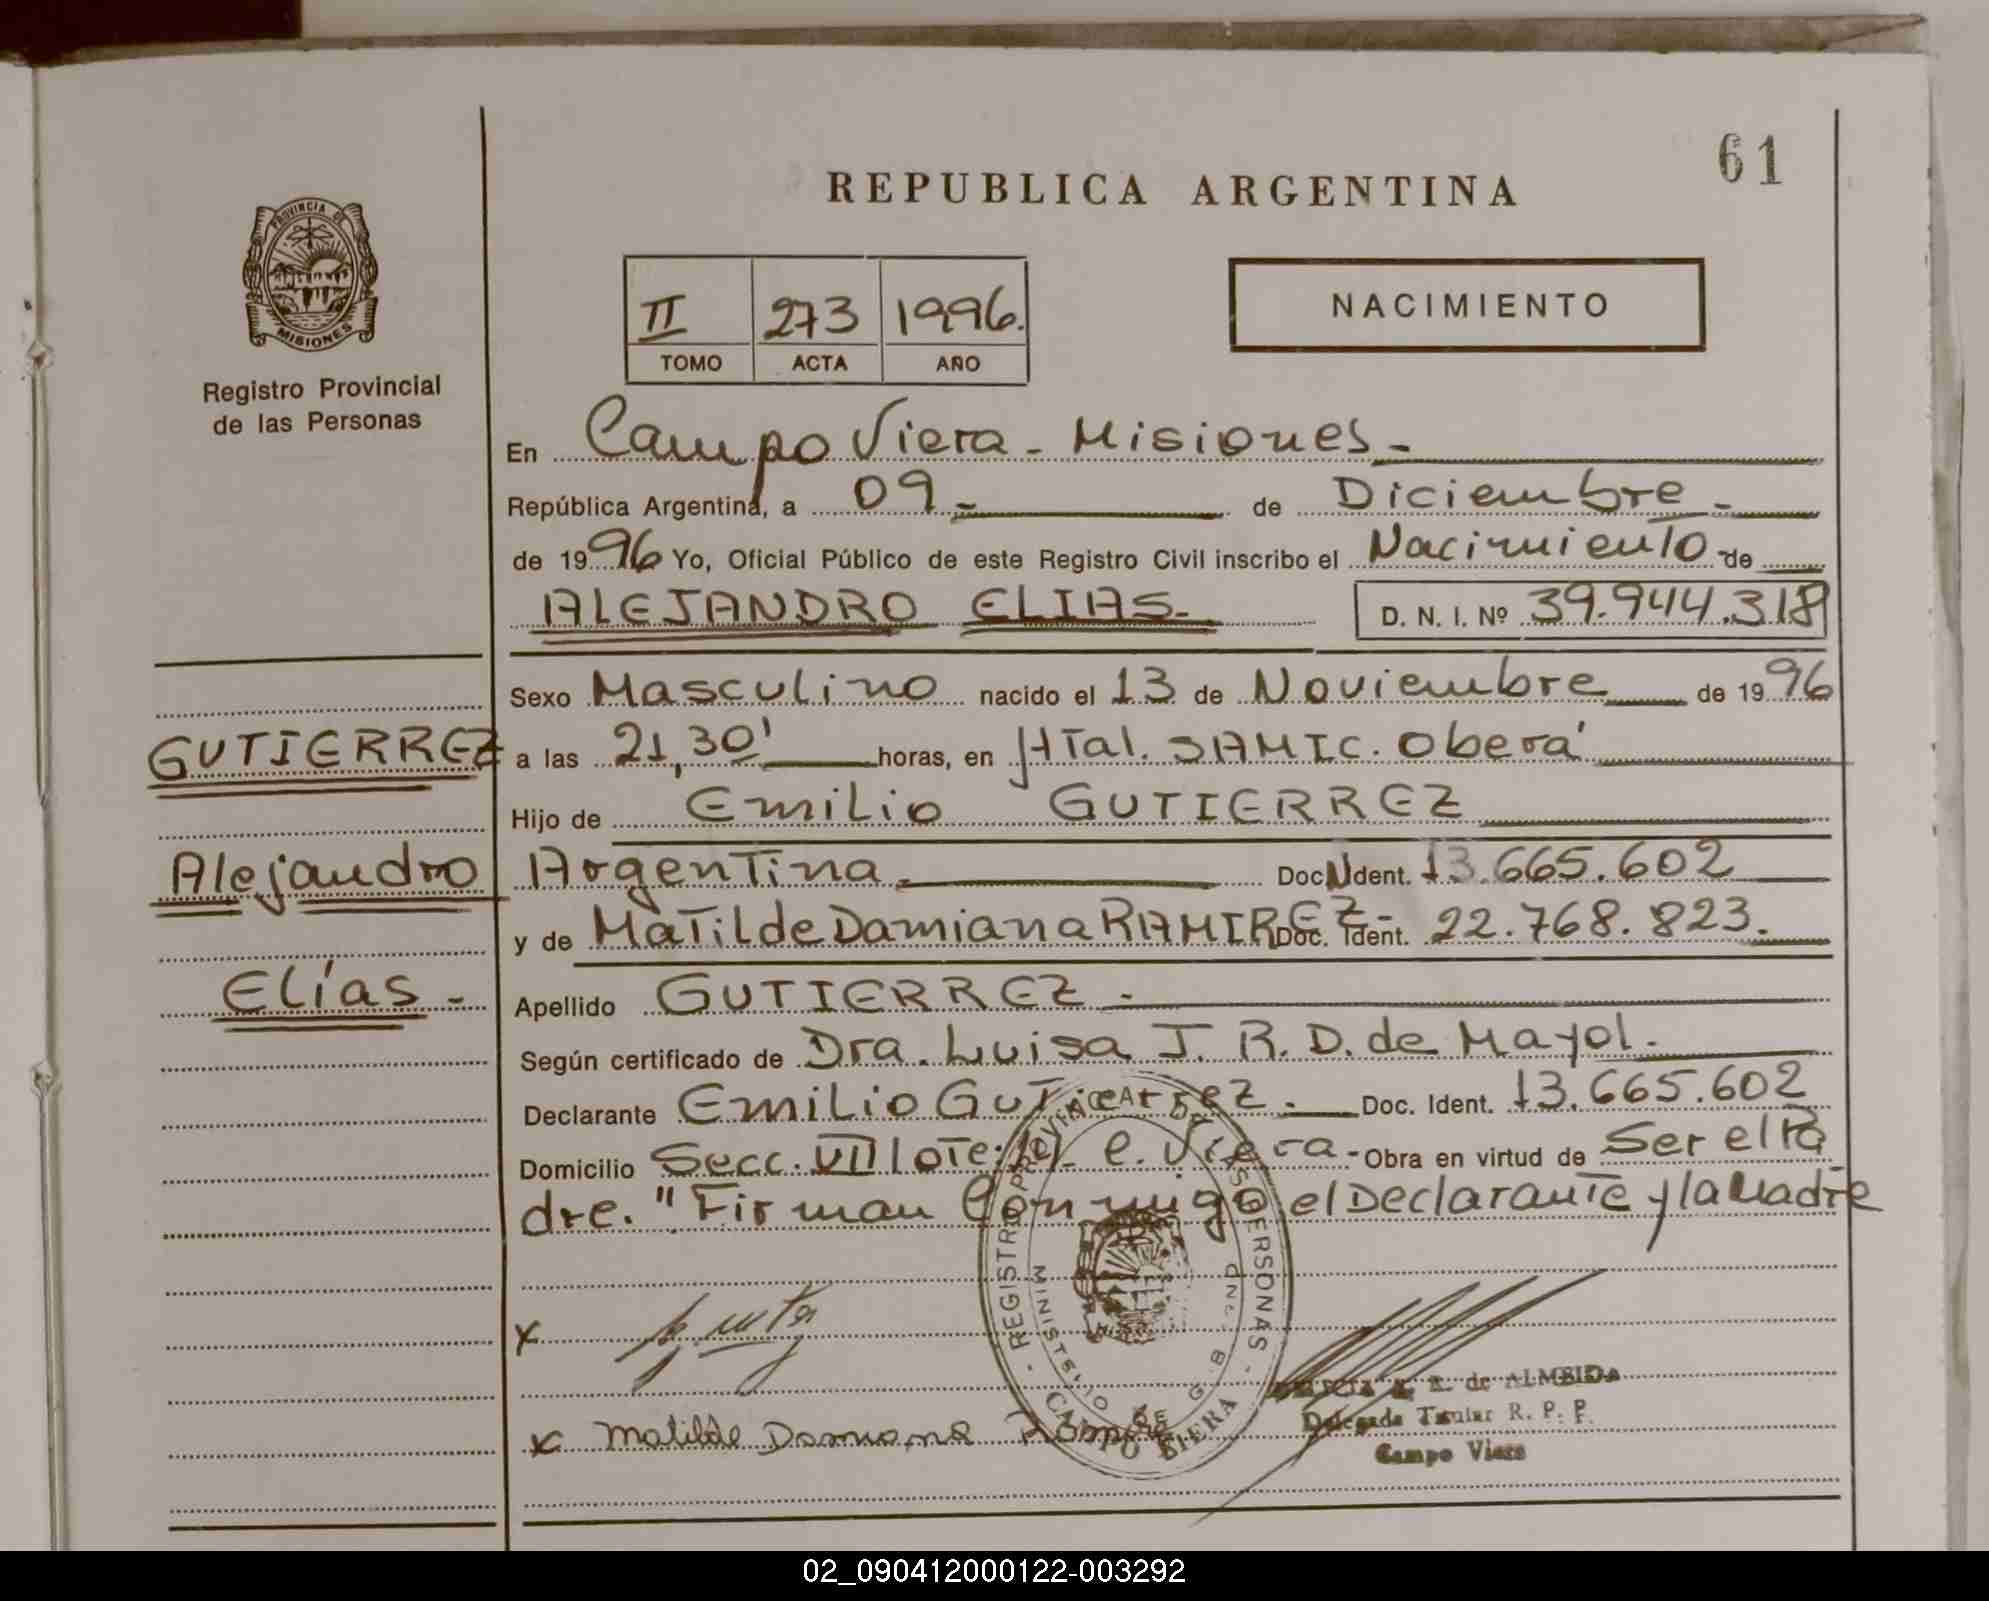 61
REPUBLICA ARGENTINA
PROVINCIA DE
MISIONES
Registro Provincial
de las Personas
II 273 1996.
TOMO ACTA AÑO
NACIMIENTO
En Campo Viera - Misiones -
República Argentina, a 09 - de Diciembre -
de 1996 Yo, Oficial Público de este Registro Civil inscribo el Nacimiento de
ALEJANDRO ELIAS - D. N. I. Nº 39.944.318
Sexo Masculino nacido el 13 de Noviembre de 1996
GUTIERREZ
a las 21,30' horas, en HTal. SAMIC. Oberá
Hijo de Emilio GUTIERREZ
Alejandro
Argentina. Doc. Ident. 13.665.602
y de Matilde Damiana RAMIREZ - Doc. Ident. 22.768.823.
Elías -
Apellido GUTIERREZ -
Según certificado de Dra. Luisa J. R. D. de Mayol.
Declarante Emilio Gutierrez. Doc. Ident. 13.665.602
Domicilio Secc. VII lote: Viera - Obra en virtud de Ser el Pa
dre. "Firman Conmigo el Declarante y la Madre
REGISTRO PROVINCIAL DE LAS PERSONAS
MINISTERIO DE
CAMPO VIERA
x
x Matilde Damiana
de ALMEIDA
Delegada Titular R. P. P.
Campo Viera
02_090412000122-003292